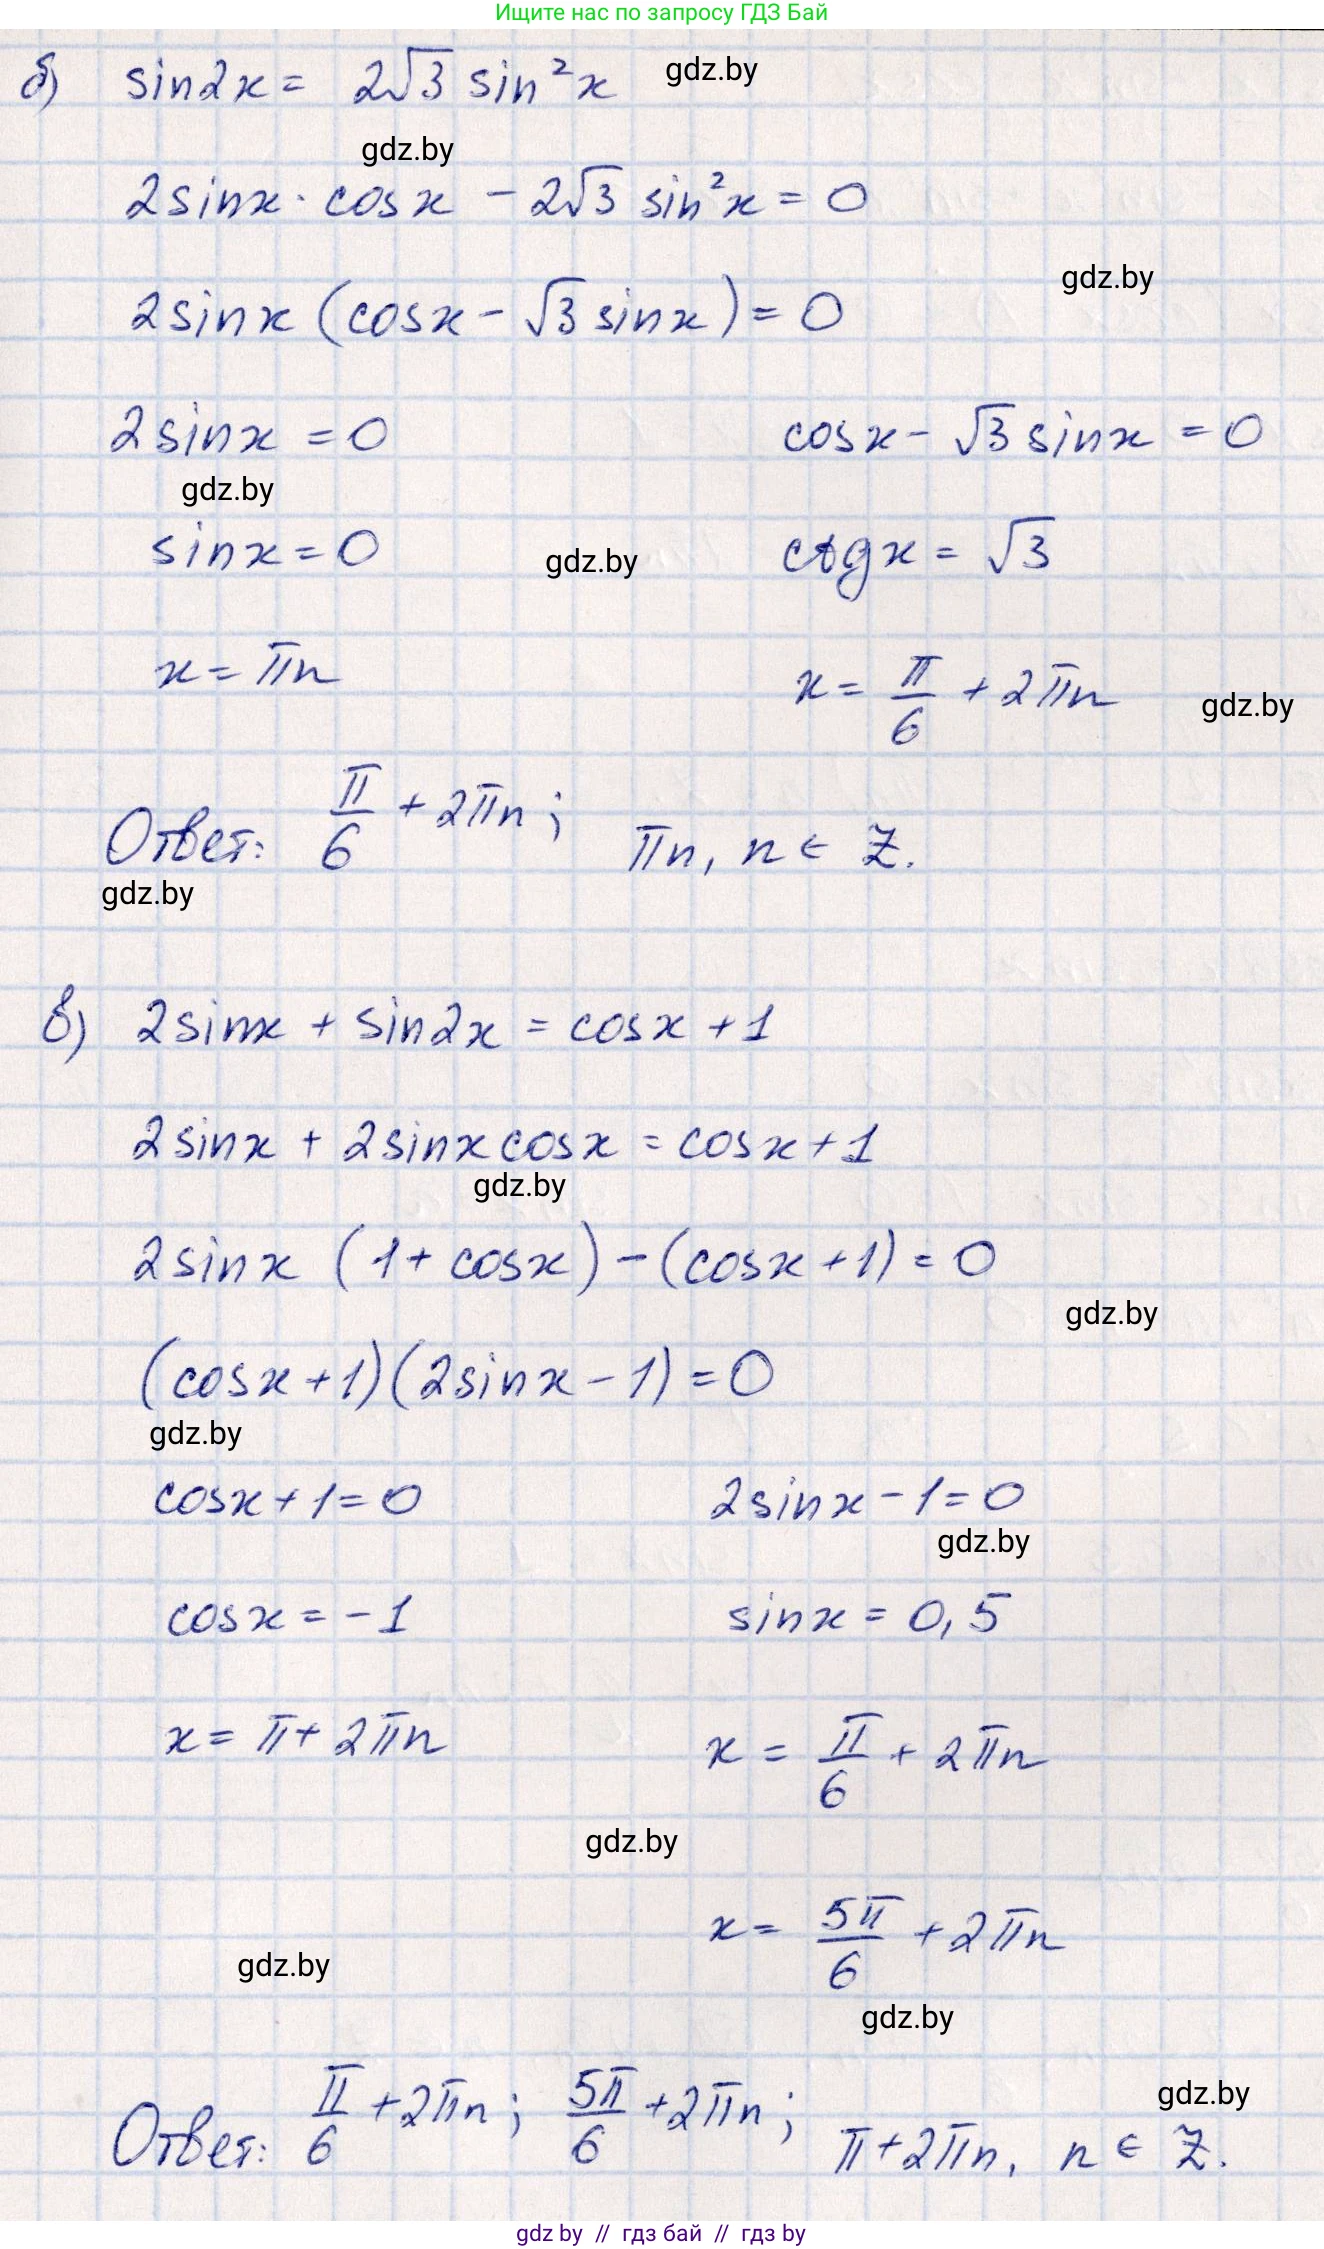 Ищите нас по запросу ГДЗ Бай
б) sin2x = 2√3 sin²x gdz.by
gdz.by
2sinx · cosx − 2√3 sin²x = 0
gdz.by
2sinx (cosx − √3 sinx) = 0
2sinx = 0 cosx − √3 sinx = 0
gdz.by
sinx = 0 gdz.by ctgx = √3
x = πn x = π/6 + 2πn gdz.by
Ответ: π/6 + 2πn; πn, n ∈ Z.
gdz.by
в) 2sinx + sin2x = cosx + 1
2sinx + 2sinxcosx = cosx + 1
gdz.by
2sinx (1 + cosx) − (cosx + 1) = 0
gdz.by
(cosx + 1)(2sinx − 1) = 0
gdz.by
cosx + 1 = 0 2sinx − 1 = 0
gdz.by
cosx = −1 sinx = 0,5
x = π + 2πn x = π/6 + 2πn
gdz.by
x = 5π/6 + 2πn
gdz.by
gdz.by
gdz.by
Ответ: π/6 + 2πn; 5π/6 + 2πn; π + 2πn, n ∈ Z.
gdz by // гдз бай // гдз by